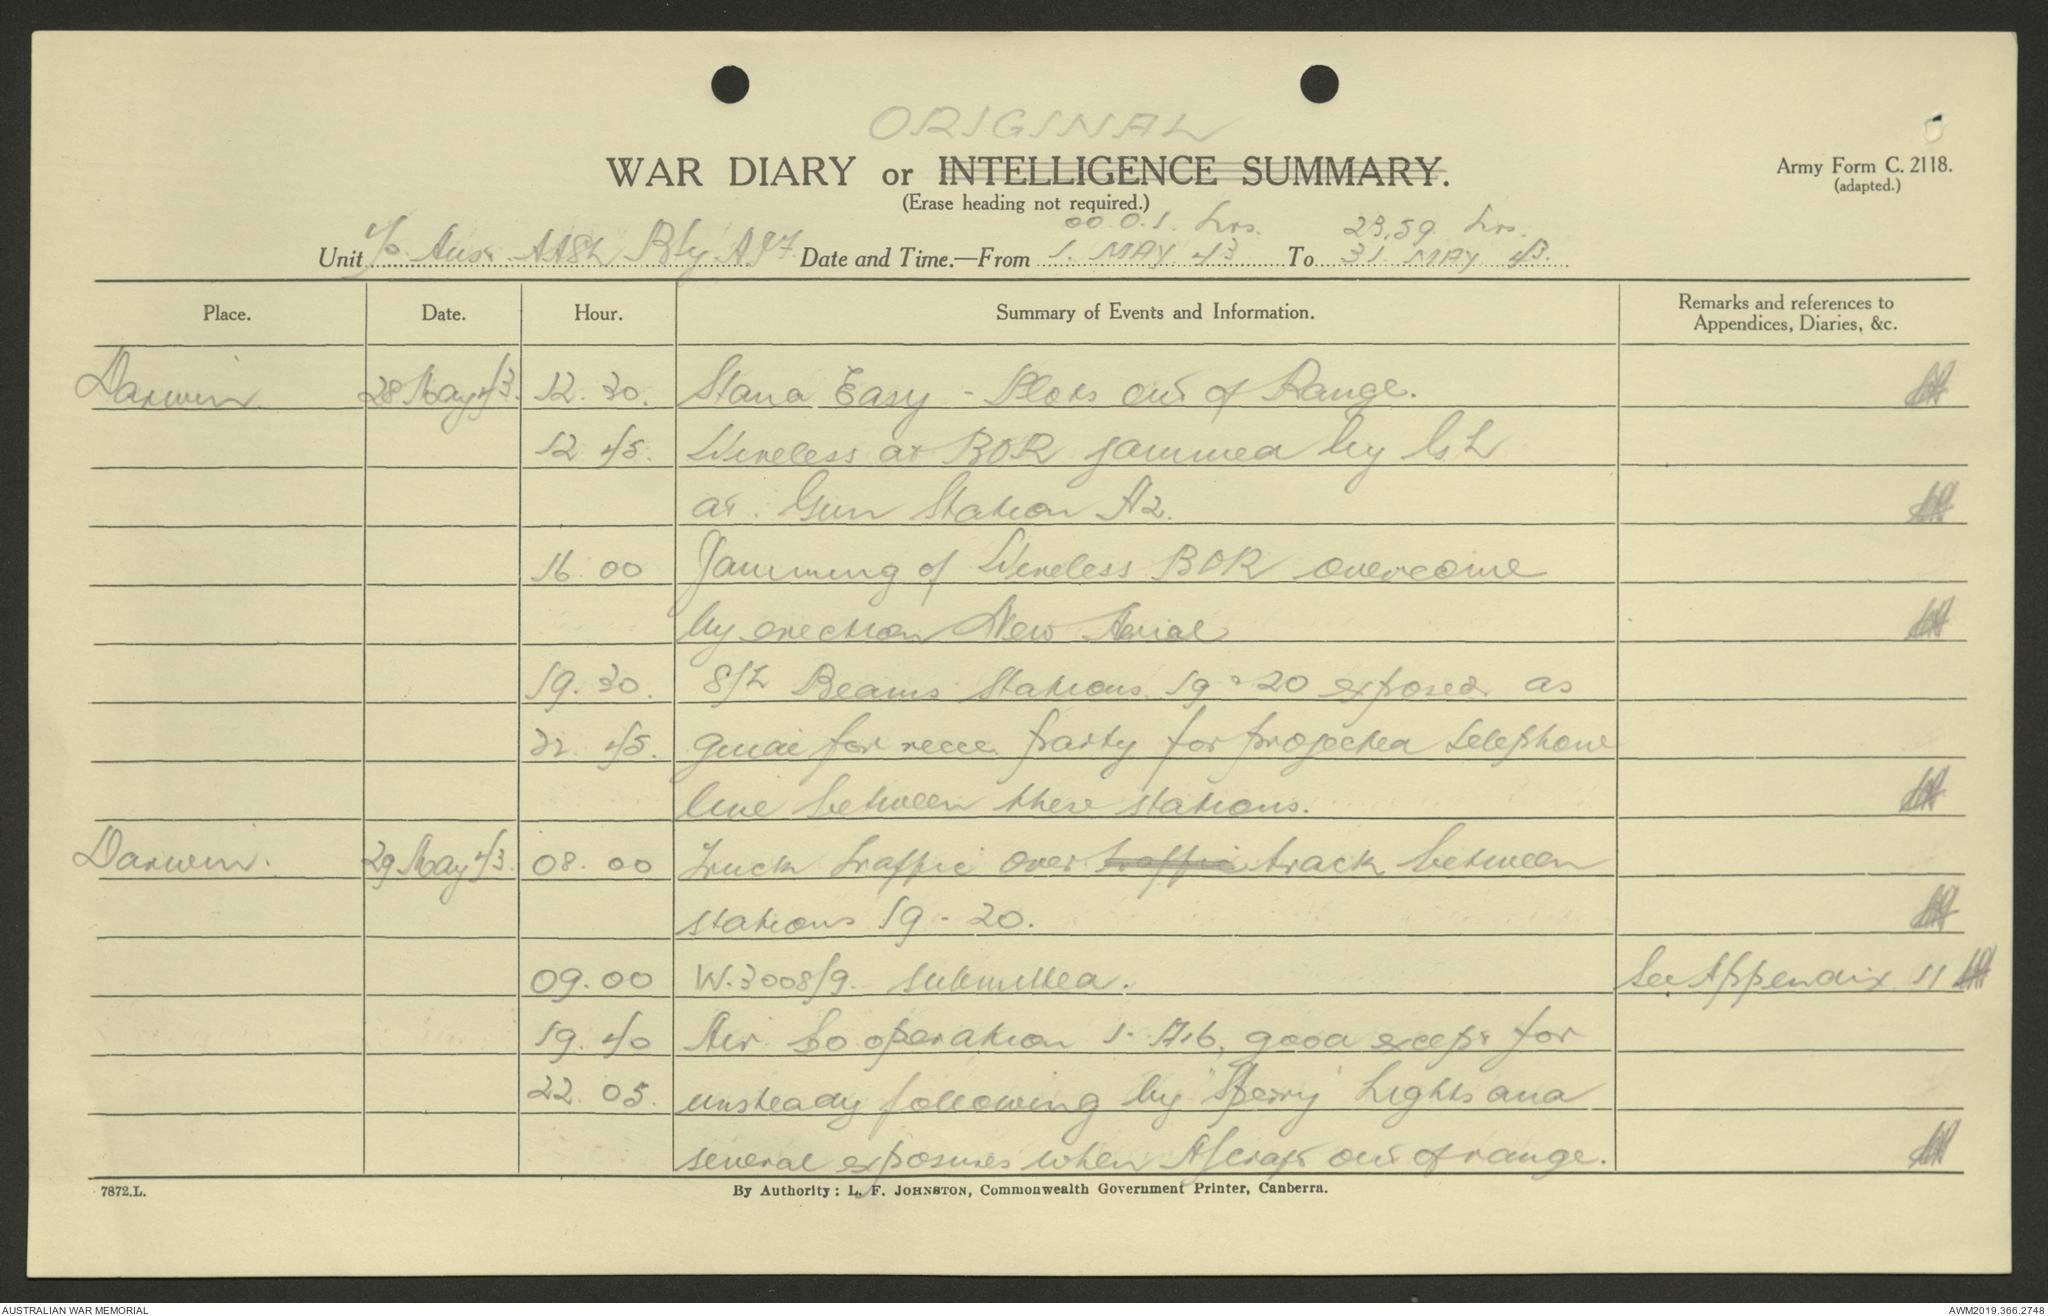 ORIGINAL
WAR DIARY or INTELLIGENCE SUMMARY.
Army Form C. 2118.
(adapted.)
(Erase heading not required.)
00.01. hrs. 23.59 hrs.
Unit Aust AASL Bty A.I.F. Date and Time.—From 1. MAY 43 To 31 MAY 43.
Place. Date. Hour. Summary of Events and Information. Remarks and references to Appendices, Diaries, &c.
Darwin. 28 May 43. 12. 30. Stand Easy - Plots out of Range.
12. 45. Wireless at BOR jammed by G L
at. Gun Station A2.
16. 00 Jamming of Wireless BOR overcome
by erection New Aerial
19. 30. S/L Beams Stations. 19 - 20 exposed as
22. 45. guide for recce. party for projected telephone
line between these stations.
Darwin. 29 May 43. 08. 00 Truck traffic over traffic track between
stations 19 - 20.
09. 00 W.3008/9. submitted. See Appendix 11
19. 40 Air Co operation 1- A16, good except for
22. 05. unsteady following by "Sperry" Lights and
several exposures when A/craft out of range.
7872.L.
By Authority: L. F. JOHNSTON, Commonwealth Government Printer, Canberra.
AUSTRALIAN WAR MEMORIAL
AWM2019.366.2748